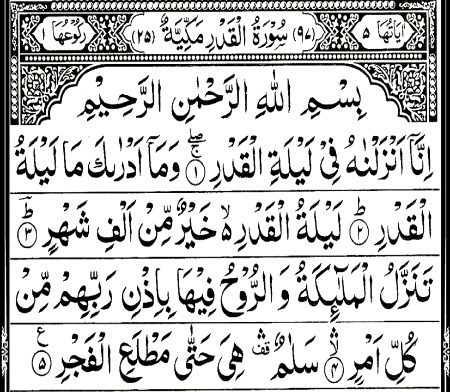 اٰيَاتُهَا ٥ (٩٧) سُوْرَةُ الْقَدْرِ مَكِّيَّةٌ (٢٥) رُكُوْعُهَا ١
بِسْمِ اللهِ الرَّحْمٰنِ الرَّحِيْمِ
اِنَّاۤ اَنْزَلْنٰهُ فِيْ لَيْلَةِ الْقَدْرِ ۚۖ ﴿١﴾ وَمَاۤ اَدْرٰىكَ مَا لَيْلَةُ
الْقَدْرِ ؕ ﴿٢﴾ لَيْلَةُ الْقَدْرِ ۙ۬ خَيْرٌ مِّنْ اَلْفِ شَهْرٍ ؕؔ ﴿٣﴾
تَنَزَّلُ الْمَلٰٓئِكَةُ وَ الرُّوْحُ فِيْهَا بِاِذْنِ رَبِّهِمْ مِّنْ
كُلِّ اَمْرٍ ۙۛ ﴿٤﴾ سَلٰمٌ ۛ۟ قف هِيَ حَتّٰى مَطْلَعِ الْفَجْرِ ﴿٥﴾ ع